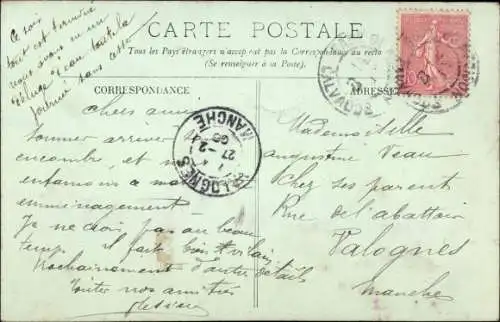 Ce soir
tout est terminé
nous avons eu un
déluge d'eau toute la
journée sans cesse
CARTE POSTALE
Tous les Pays étrangers n'acceptent pas la Correspondance au recto
(Se renseigner à la Poste).
CORRESPONDANCE
ADRESSE
Chers amis
sommes arrivés
encombre, et
entamons à
emménagement
Je ne dois pas au beau
temps il fait très vilain
Prochainement d'autres détails
Toutes nos amitiés
VALOGNES
27-2
05
MANCHE
Mademoiselle
Augustine Veau
chez ses parents
Rue de l'abattoir
Valognes
Manche
10